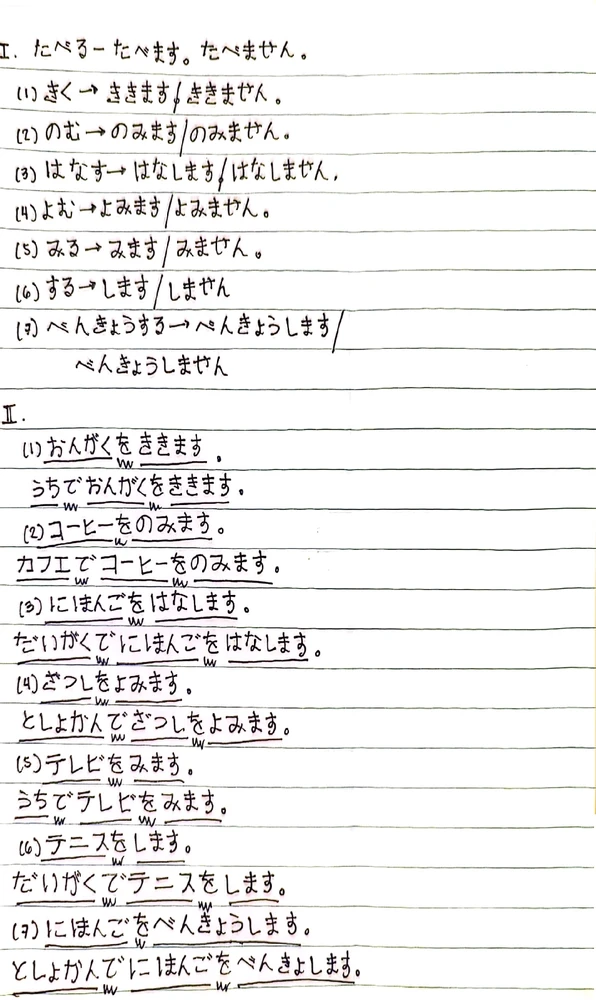 I. たべる－たべます。たべません。
(1) きく→ ききます/ききません。
(2) のむ→のみます/のみません。
(3) はなす→はなします/はなしません.
(4) よむ→よみます/よみません。
(5) みる→みます/みません。
(6) する→します/しません
(7) べんきょうする→べんきょうします/
べんきょうしません
II.
(1) おんがくをききます.
うちでおんがくをききます.
(2) コーヒーをのみます。
カフエでコーヒーをのみます.
(3) にほんごをはなします.
だいがくでにほんごをはなします。
(4) ざつしをよみます.
としょかんでざつしをよみます。
(5) テレビをみます.
うちでテレビをみます。
(6) テニスをします。
だいがくでテニスをします。
(7) にほんごをべんきょうします.
としょかんでにほんごをべんきょします.